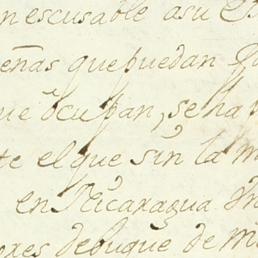 n escusable a su E
eñas que puedan
ue ocupan, se ha
te el que sin la m
en Nicaragua
ores de buque de m